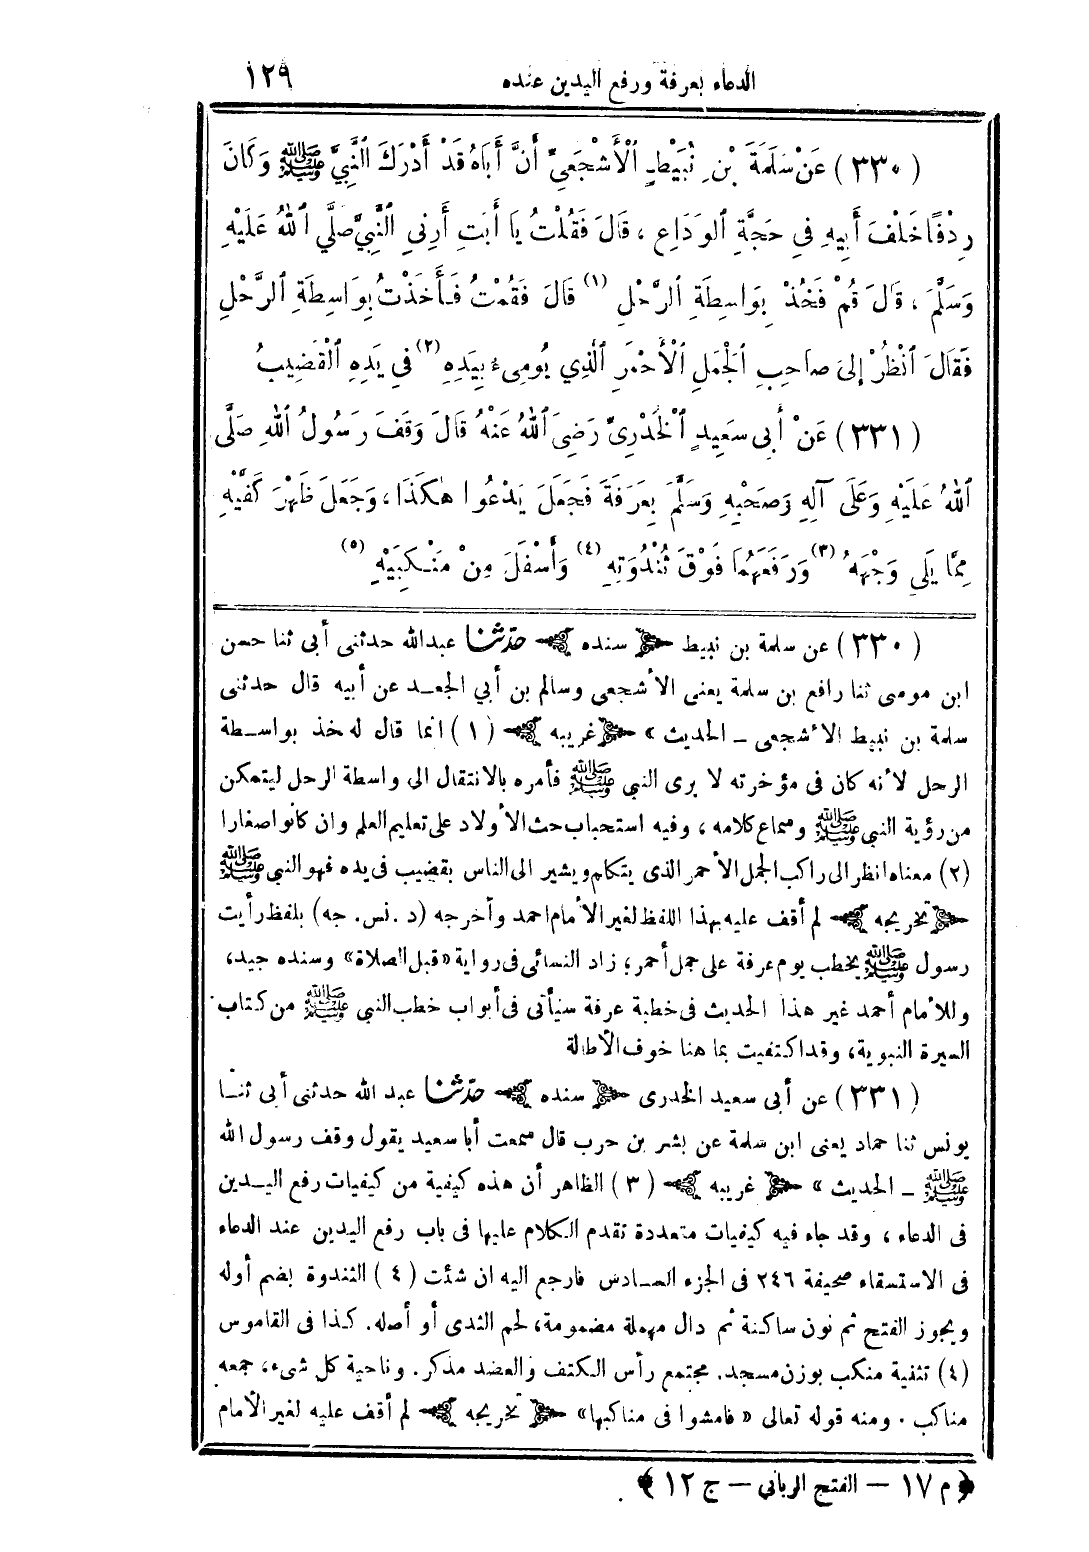 الدعاء بعرفة ورفع اليدين عنده ١٢٩
(٣٣٠) عَنْ سَلَمَةَ بْنِ نُبَيْطٍ الْأَشْجَعِيِّ أَنَّ أَبَاهُ قَدْ أَدْرَكَ النَّبِيَّ ﷺ وَكَانَ
رِدْفًا خَلْفَ أَبِيهِ فِي حَجَّةِ الوَدَاعِ ، قَالَ فَقُلْتُ يَا أَبَتِ أَرِنِي النَّبِيَّ صَلَّي اللهُ عَلَيْهِ
وَسَلَّمَ ، قَالَ قُمْ فَخُذْ بِوَاسِطَةِ الرَّحْلِ (١) قَالَ فَقُمْتُ فَأَخَذْتُ بِوَاسِطَةِ الرَّحْلِ
فَقَالَ انْظُرْ إِلىَ صاَحِبِ الجَمَلِ الْأَحْمَرِ الَّذِي يُومِىءُ بِيَدِهِ (٢) فِي يَدِهِ الْقَضِيبُ
(٣٣١) عَنْ أَبِى سَعِيدٍ الْخُدْرِىِّ رَضِىَ اللهُ عَنْهُ قَالَ وَقَفَ رَسُولُ اللهِ صَلَّى
اللهُ عَلَيْهِ وَعَلَى آلِهِ وَصَحْبِهِ وَسَلَّمَ بِعَرَفَةَ فَجَعَلَ يَدْعُوا هٰكَذَا ، وَجَعَلَ ظَهْرَ كَفَّيْهِ
مِمَّا يَلَي وَجْهَهُ (٣) وَرَفَعَهُمَا فَوْقَ ثُنْدُوَتِهِ (٤) وَأَسْفَلَ مِنْ مَنْكِبَيْهِ (٥)
(٣٣٠) عن سلمة بن نبيط ﴿ سنده ﴾ حدّثنا عبدالله حدثنى أبى ثنا حسن
ابن موسى ثنا رافع بن سلمة يعنى الأشجعى وسالم بن أبي الجعد عن أبيه قال حدثنى
سلمة بن نبيط الأشجعى ـ الحديث » ﴿ غريبه ﴾ (١) انما قال له خذ بواسطة
الرحل لأنه كان فى مؤخرته لا يرى النبي ﷺ فأمره بالانتقال الى واسطة الرحل ليتمكن
من رؤية النبي ﷺ وسماع كلامه ، وفيه استحباب حث الأولاد على تعليم العلم وان كانوا صغارا
(٢) معناه انظر الى راكب الجمل الأحمر الذى يتكلم ويشير الى الناس بقضيب فى يده فهو النبي ﷺ
﴿ تخريجه ﴾ لم أقف عليه بهذا اللفظ لغير الأمام احمد وأخرجه (د . نس . جه) بلفظ رأيت
رسول ﷺ يخطب يوم عرفة على جمل أحمر؛ زاد النسائى فى رواية «قبل الصلاة» وسنده جيد،
وللأمام أحمد غير هذا الحديث فى خطبة عرفة سيأتى فى أبواب خطب النبي ﷺ من كتاب
السيرة النبوية، وقد اكتفيت بما هنا خوف الأطالة
(٣٣١) عن أبى سعيد الخدرى ﴿ سنده ﴾ حدّثنا عبد الله حدثنى أبى ثنا
يونس ثنا حماد يعنى ابن سلمة عن بشر بن حرب قال سمعت أبا سعيد يقول وقف رسول الله
ﷺ ـ الحديث » ﴿ غريبه ﴾ (٣) الظاهر أن هذه كيفية من كيفيات رفع اليدين
فى الدعاء ، وقد جاء فيه كيفيات متعددة تقدم الكلام عليها فى باب رفع اليدين عند الدعاء
فى الاستسقاء صحيفة ٢٤٦ فى الجزء السادس فارجع اليه ان شئت (٤) الثندوة بضم أوله
ويجوز الفتح ثم نون ساكنة ثم دال مهملة مضمومة، لحم الثدى أو أصله. كذا فى القاموس
(٤) تثنية منكب بوزن مسجد. مجتمع رأس الكتف والعضد مذكر. وناحية كل شىء، جمعه
مناكب . ومنه قوله تعالى « فامشوا فى مناكبها» ﴿ تخريجه ﴾ لم أقف عليه لغير الأمام
﴿ م ١٧ – الفتح الرباني – ج ١٢ ﴾